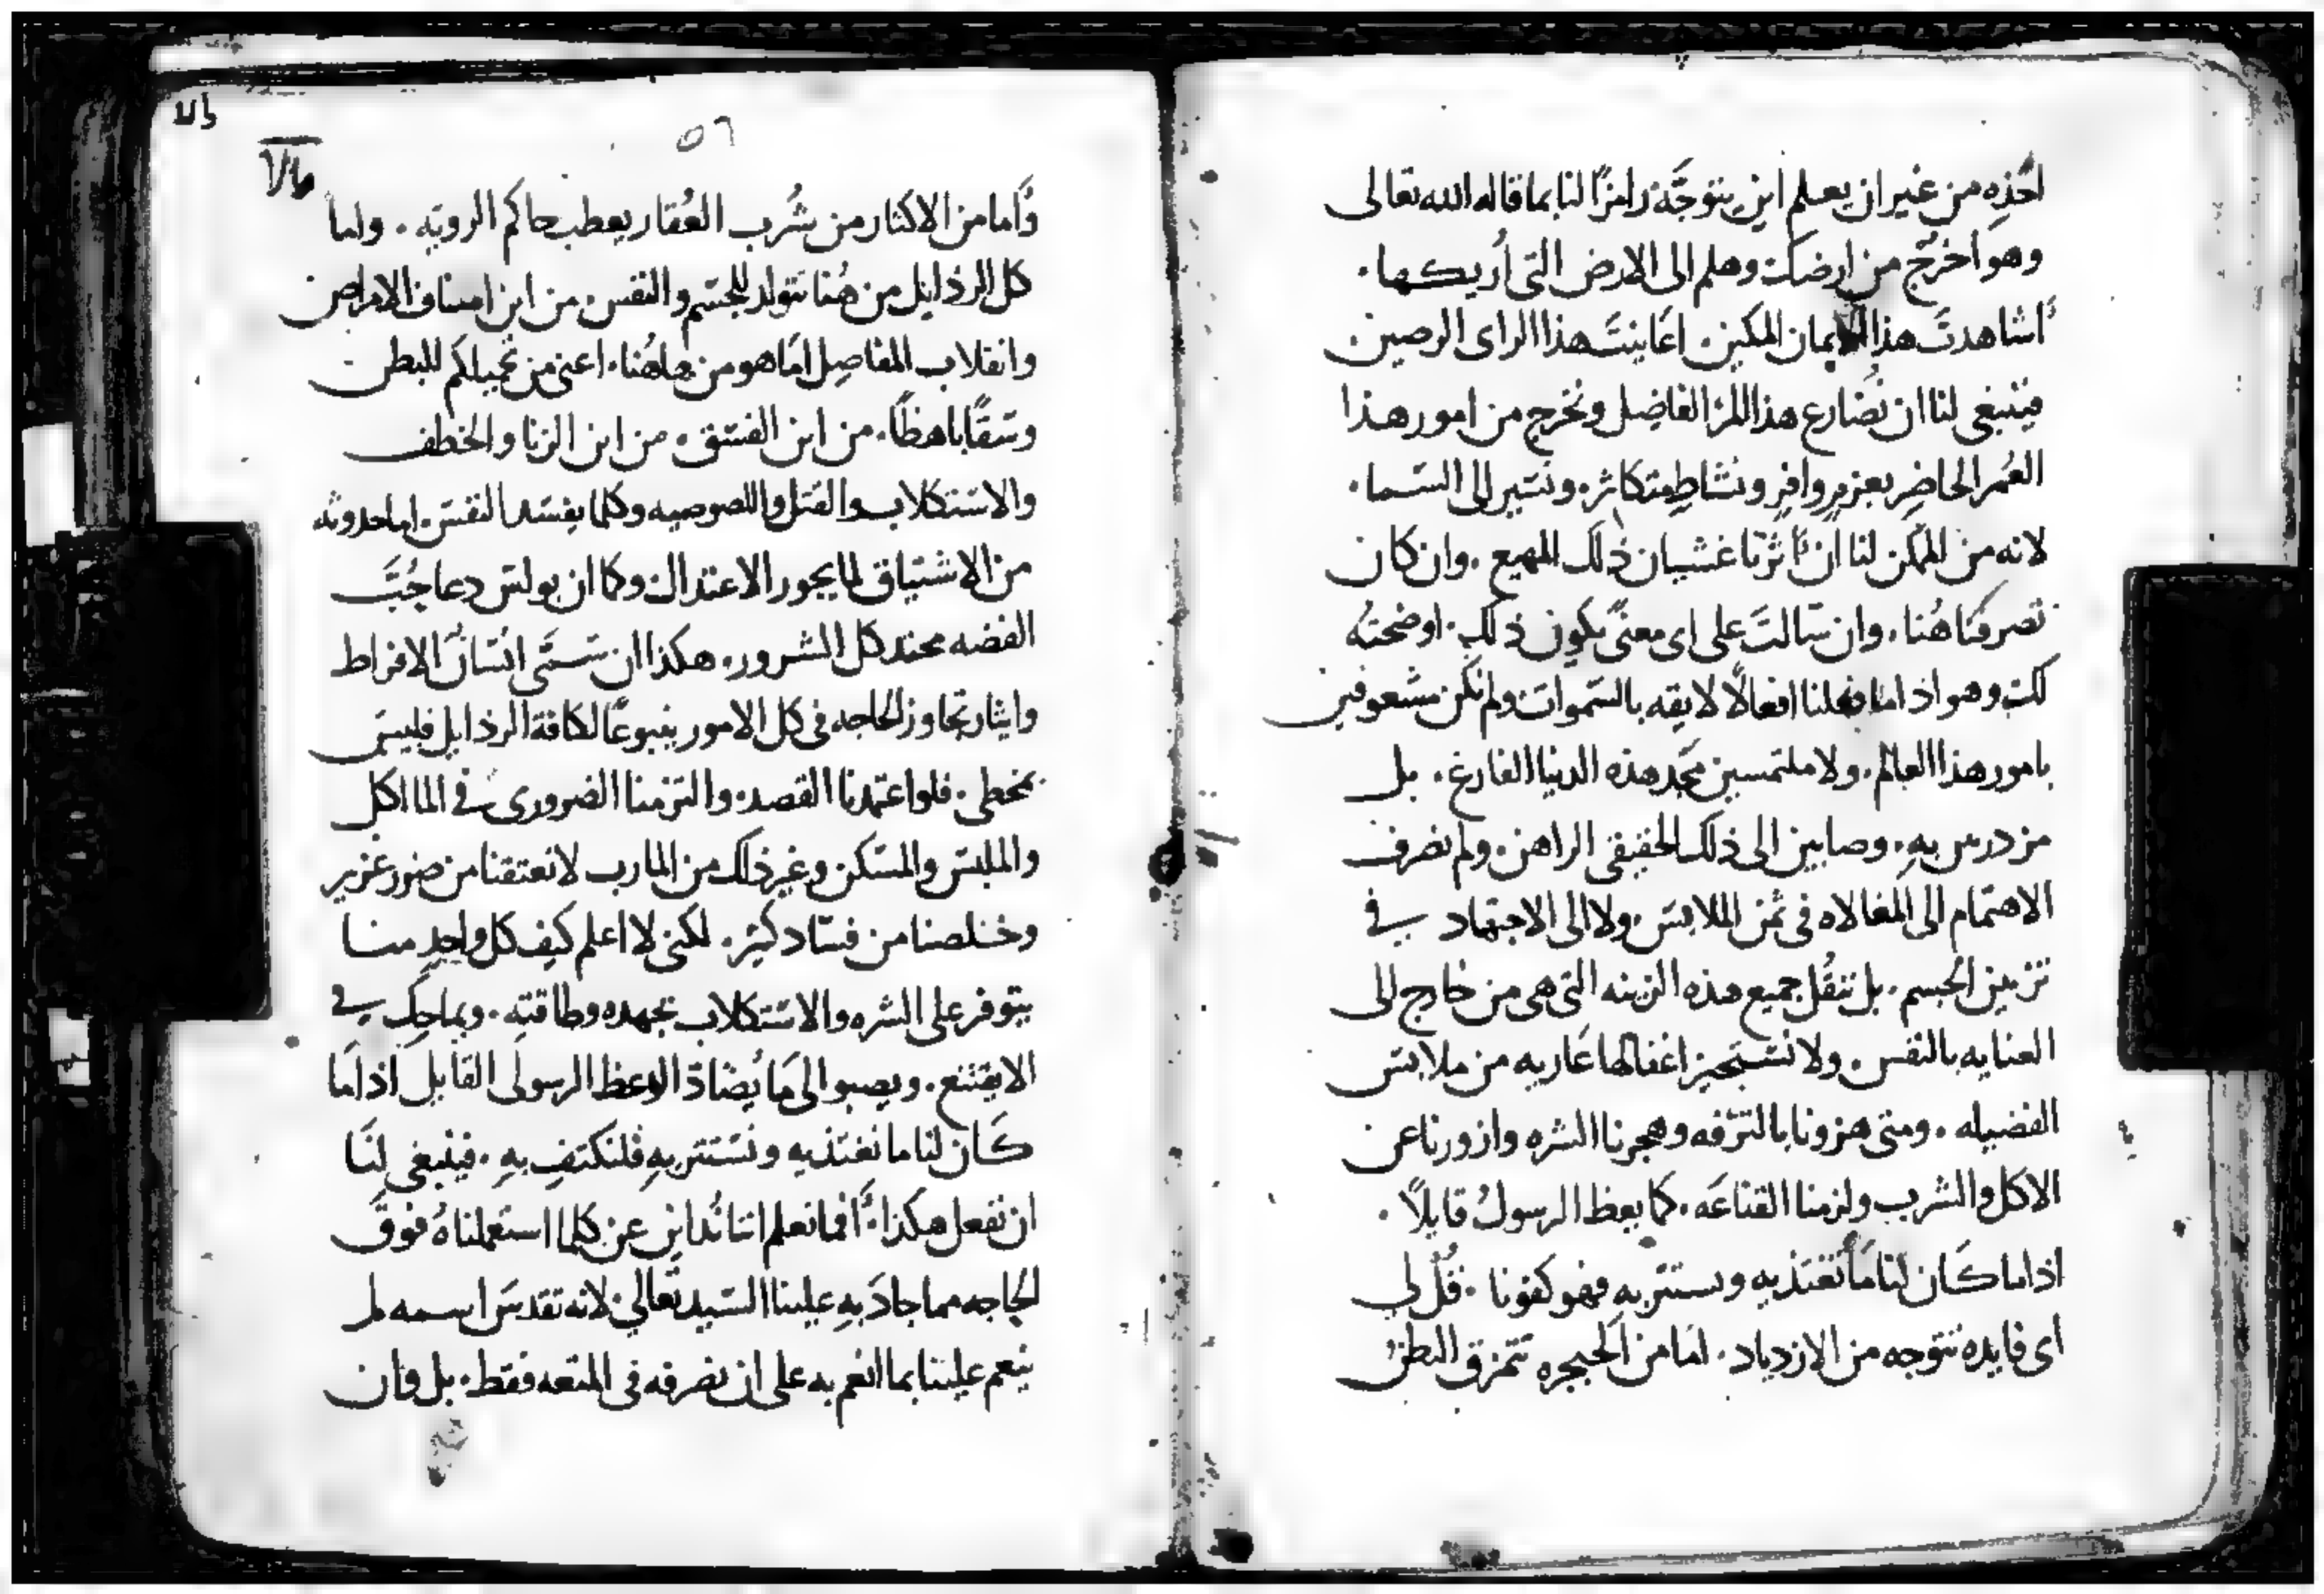 اخذه من غير ان يعلم اين يتوجَّه رامزًا لنا بما قاله الله تعالى
وهو أخرُج من ارضك وهلم الى الارض التى أريكها ٠
أشاهدتَ هذا الايمان المكين اعاينتَ هذا الراى الرصين
فينبغى لنا ان نُضارع هذا المرَ الفاضِل ونخرج من امور هذا
العُمر الحاضِر بعزمٍ وافرٍ ونشاطٍ متكاثره ونسير الى السَما ٠
لانه من الممكن لنا ان اثرنا غشيان ذلك المهيع ٠ وان كان
تصرفنا هُنا ٠ وان سَالتَ على اى معنًى يكون ذلك ٠ اوضحتهُ
لكَ وهو اذ اما فعلنا افعالًا لايقه بالسَموات ولم نكن مشعوفين
بامور هذا العالم ٠ ولا ملتمسين مجد هذه الدنيا الفارغ ٠ بل
مزدرين بهِ ٠ وصابين الى ذلك الحقيقى الراهن ٠ ولم نصرف
الاهتمام الى المغالاه فى ثمن الملابسَ ولا الى الاجتهاد فى
تزيين الجسم ٠ بل ننقُل جميع هذه الزينه التى هى من خارج الى
العنايه بالنفس ٠ ولا نستجيز اغفالها عاريه من ملابسَ
الفضيله ٠ ومتى هزونا بالترَفه وهجرنا الشره وازورنا عن
الاكل والشرب ولزمنا القناعَه ٠ كما يعظ الرسولُ قايلًا ٠
اذاما كان لنا مَا نغتذيه ونستتر به فهو كفونا ٠ قُل لى
اى فايده تتوجه من الازدياد ٠ امَا من الحنجره تتمزق البطن
٥٦
وَأما من الاكثار من شُرب العُقار يعطب حاكم الرويّه ٠ واما
كل الرذايل من هُنا تتولد للجسَم والنفس ٠ من اين اصناف الامراض
وانقلاب المفاصِل امَا هو من هاهُنا ٠ اعنى من تحميلكم للبطن
وسَقًا باهظًا ٠ من اين الفسَق ٠ من اين الزنا والخطف
والاسَتكلاب والقتل واللصوصيه وكلما يفسَد النفسَ ٠ اما حدوثه
من الاشتياق لما يجوز الاعتدال وكما ان بولسَ دعا حُبَّ
الفضه محتد كل الشرور ٠ هكذا ان سَمَّى انسَانٌ الافراط
وايثار تجاوز الحاجه فى كل الامور ينبوعًا لكافة الرذايل فليسَ
يخطى ٠ فلو اعتمدنا القصد ٠ والتزمنا الضرورى فى الماكل
والملبسَ والمسَكن وغير ذلك من المارب لانعتقنا من ضرر غزير
وخلصنا من فسَاد كثير ٠ لكنى لا اعلم كيف كل واحدٍ منا
يتوفر على الشره والاسَتكلاب بجهده وطاقته ٠ ويماحك فى
الا يقتنع ٠ ويصبو الى مَا يُضادّ الوعظ الرسولى القايل اذامَا
كَان لنا ما نغتذيه ونسَتتر بهِ فلنكتفِ بهِ ٠ فينبغى لنَا
ان نفعل هكذا ٠ أفما نعلم اننا نُداين عن كلما استعملناهُ فوقَ
الحاجه مما جادَ بهِ علينا السَيد تعالى لانه تقدسَ اسمه لم
ينعم علينا بما انعم به على ان نصرفه فى المتعه فقط ٠ بل وان